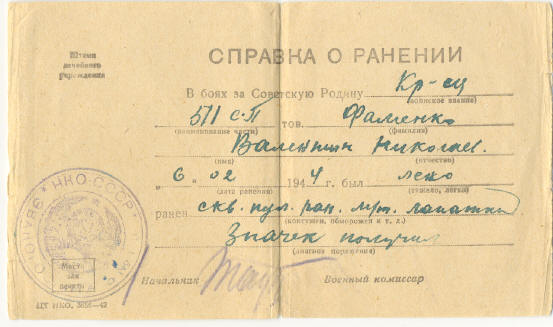 Штамп
лечебного
учреждения
СПРАВКА О РАНЕНИИ
В боях за Советскую Родину Кр-ец
(воинское звание)
511 с.п тов. Фаменко
(наименование части) (фамилия)
Валентин Николаев.
(имя) (отчество)
„6 „ 02 1944 г. был легко
(дата ранения) (тяжело, легко)
ранен скв. пул. ран. лопатки
(контужен, обморожен и т. д.)
Значек получил
(диагноз поражения)
НКО-СССР
Место
для
печати
Начальник Военный комиссар